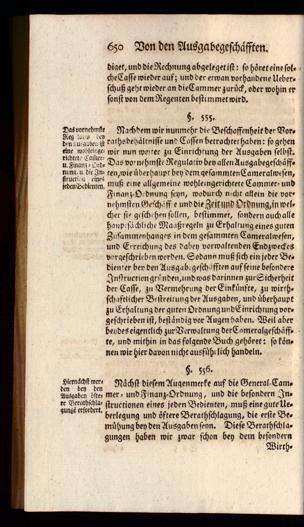 650 Von den Ausgabegeschäfften.
diget, und die Rechnung abgeleget ist: so höret eine sol-
che Casse wieder auf; und der etwan vorhandene Ueber-
schuß geht wieder an die Cammer zurück, oder wohin er
sonst von dem Regenten bestimmet wird.
§. 555.
Das vornehmste
Regulativ bey
den Ausgaben ist
eine wohleinge-
richtete Cammer-
u. Finanz-Ord-
nung, u. die In-
struction eines
jeden Bedienten.
Nachdem wir nunmehr die Beschaffenheit der Vor-
rathsbehältnisse und Cassen betrachtet haben: so gehen
wir nun weiter zu Einrichtung der Ausgaben selbst.
Das vornehmste Regulativ bey allen Ausgabegeschäff-
ten, wie überhaupt bey dem gesammten Cameralwesen,
muß eine allgemeine wohleingerichtete Cammer- und
Finanz-Ordnung seyn, wodurch nicht allein die vor-
nehmsten Geschäffte und die Zeit und Ordnung, in wel-
cher sie geschehen sollen, bestimmet, sondern auch alle
hauptsächliche Maaßregeln zu Erhaltung eines guten
Zusammenhanges in dem gesammten Cameralwesen,
und Erreichung des dabey vorwaltenden Endzweckes
vorgeschrieben werden. Sodann muß sich ein jeder Be-
dienter bey den Ausgabegeschäfften auf seine besondere
Instruction gründen, und was darinnen zur Sicherheit
der Casse, zu Vermehrung der Einkünfte, zu wirth-
schaftlicher Bestreitung der Ausgaben, und überhaupt
zu Erhaltung der guten Ordnung und Einrichtung vor-
geschrieben ist, beständig vor Augen haben. Weil aber
beydes eigentlich zur Verwaltung der Cameralgeschäff-
te, und mithin in das folgende Buch gehöret: so kön-
nen wir hier davon nicht ausführlich handeln.
§. 556.
Hiernächst wer-
den bey den
Ausgaben öfte-
re Berathschla-
gungen erfordert.
Nächst diesem Augenmerke auf die General-Cam-
mer- und Finanz-Ordnung, und die besondern In-
structionen eines jeden Bedienten, muß eine gute Ue-
berlegung und öftere Berathschlagung, die erste Be-
mühung bey den Ausgaben seyn. Diese Berathschla-
gungen haben wir zwar schon bey dem besondern
Wirth-